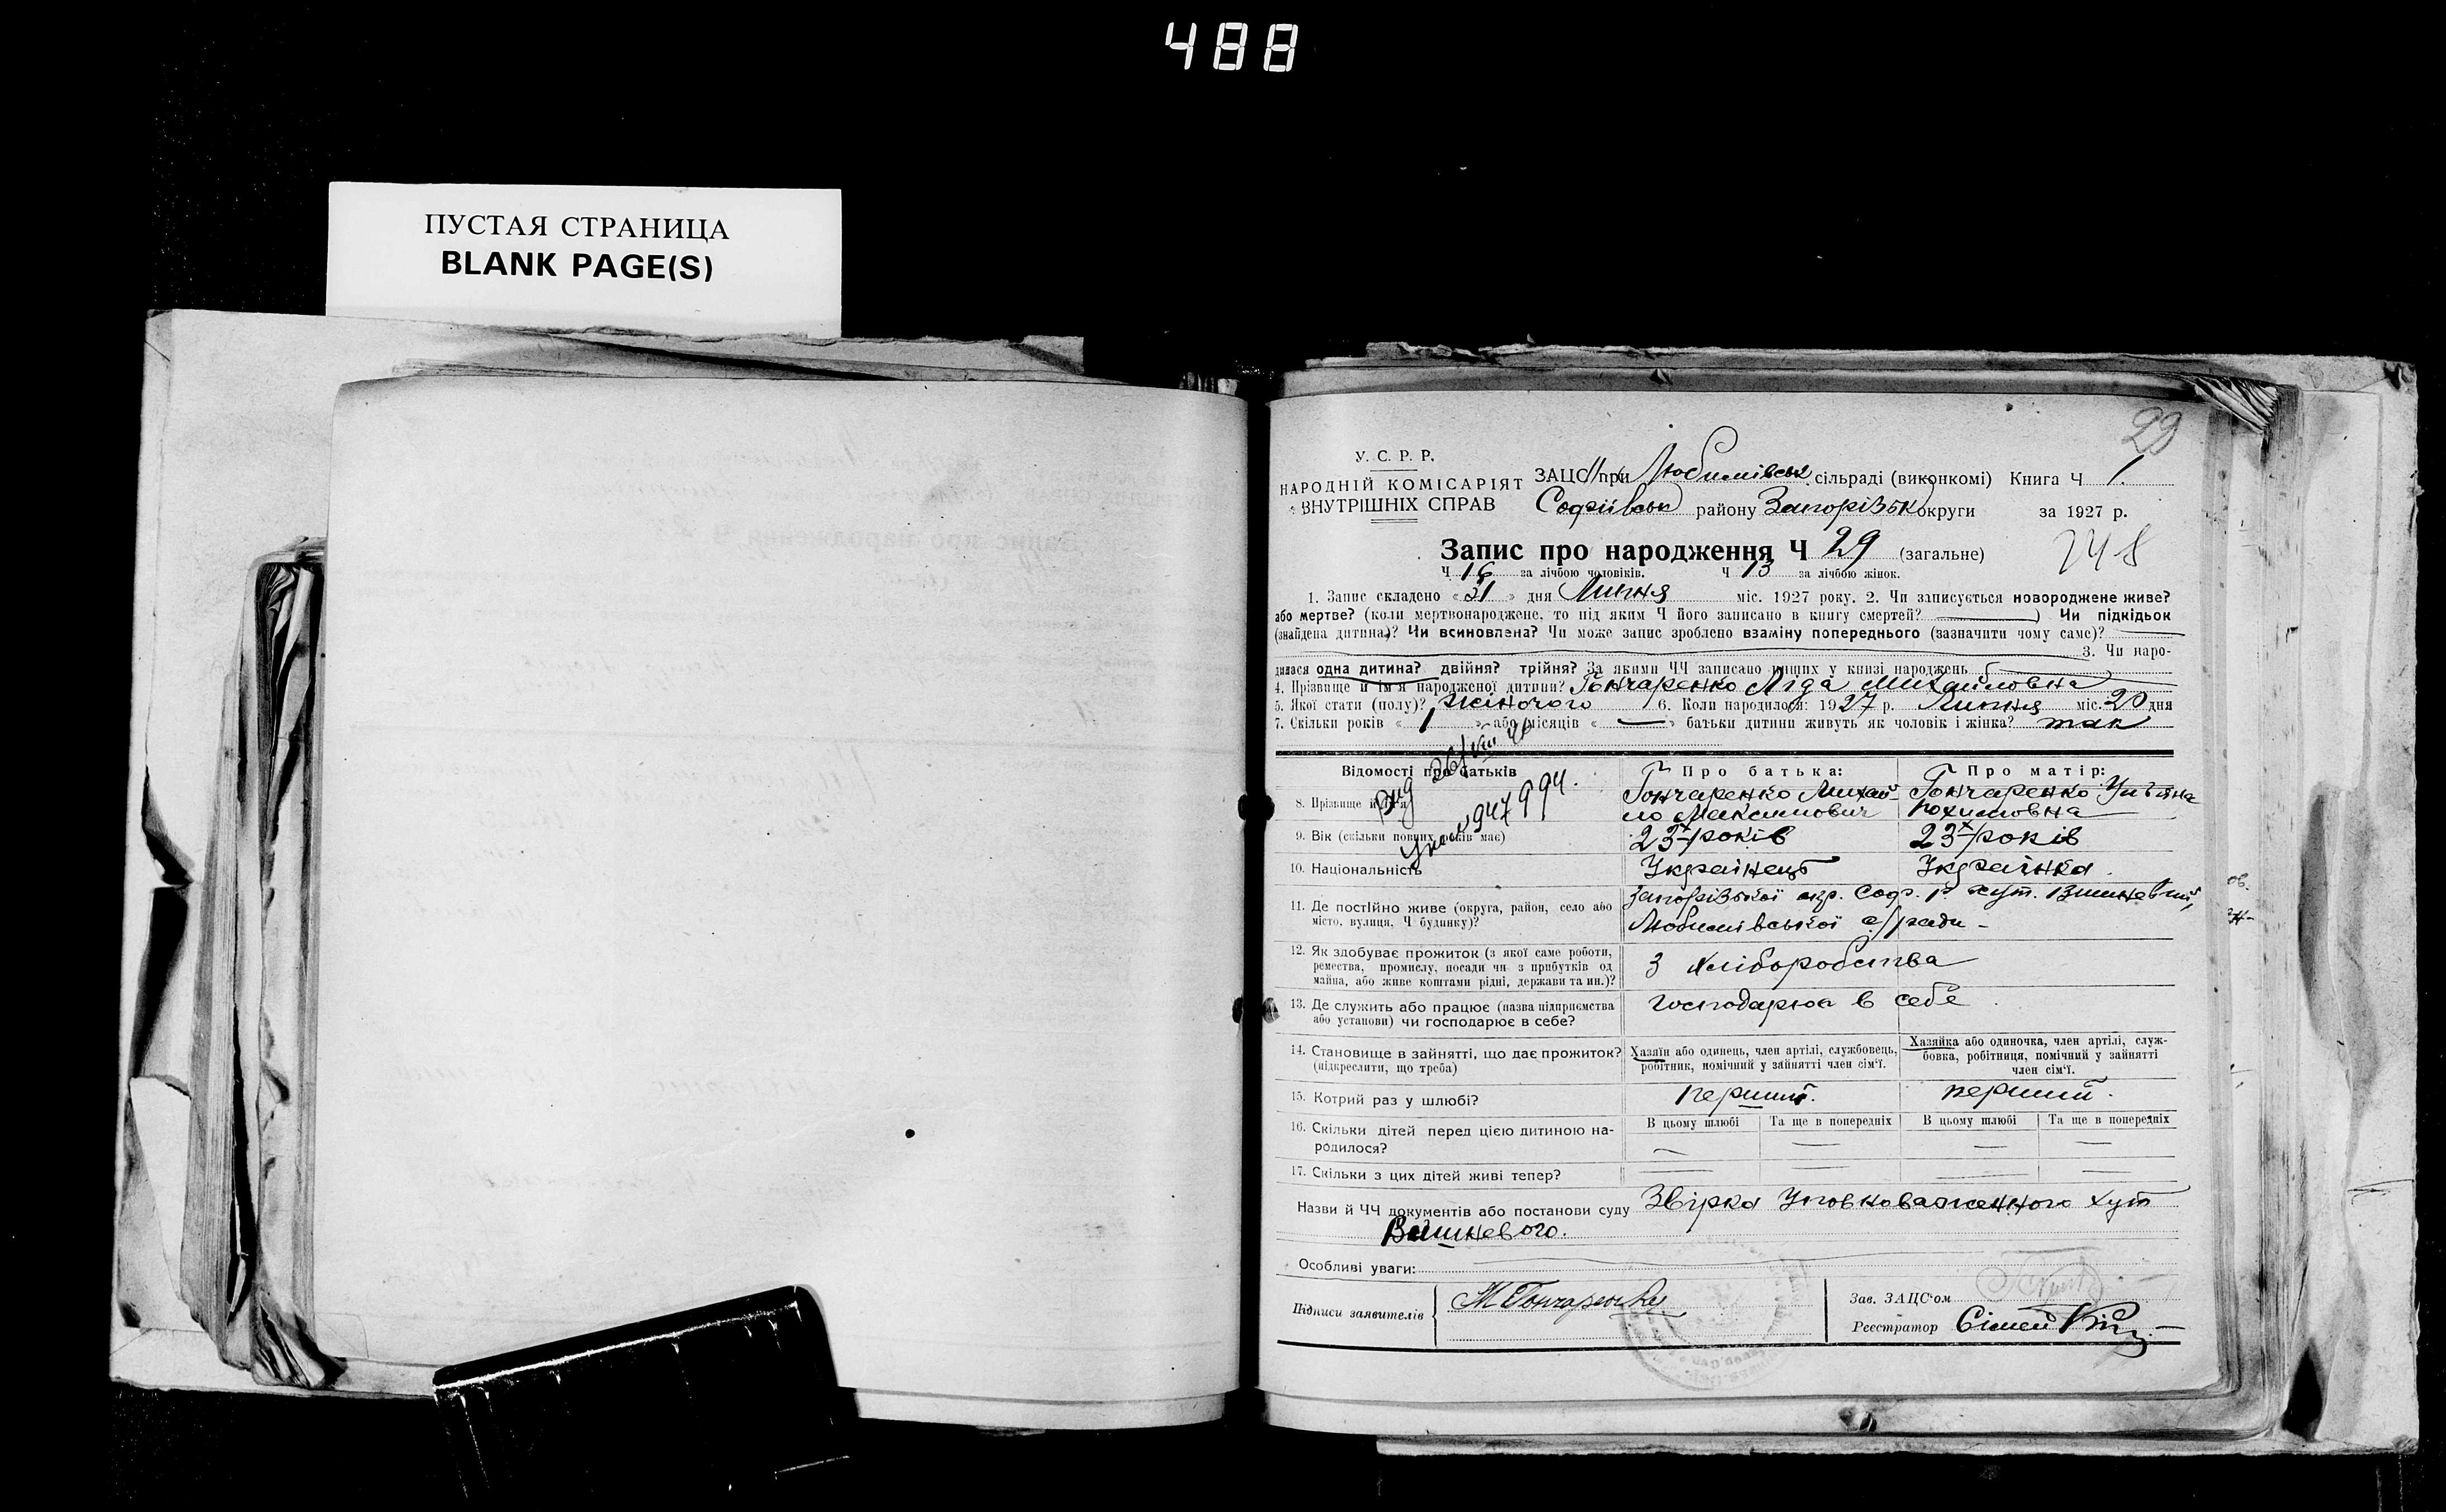 488
ПУСТАЯ СТРАНИЦА
BLANK PAGE(S)
29
У. С. Р. Р.
НАРОДНІЙ КОМІСАРІЯТ
ВНУТРІШНІХ СПРАВ
ЗАЦС при Любимівськ сільраді (виконкомі) Книга Ч 1.
Софіївськ району Запорізьк округи за 1927 р.
Запис про народження Ч 29 (загальне) 248
Ч 16 за лічбою чоловіків. Ч 13 за лічбою жінок.
1. Запис складено « 21 » дня Липня міс. 1927 року. 2. Чи записується новороджене живе?
або мертве? (коли мертвонароджене, то під яким Ч його записано в книгу смертей? ) Чи підкідьок
(знайдена дитина)? Чи всиновлена? Чи може запис зроблено взаміну попереднього (зазначити чому саме)?
3. Чи наро-
дилася одна дитина? двійня? трійня? За якими ЧЧ записано инших у книзі народжень
4. Прізвище й ім'я народженої дитини? Гончаренко Ліда Михайловна
5. Якої стати (полу)? Жіночого 6. Коли народилося: 1927 р. Липня міс. 20 дня
7. Скільки років « 1 » або місяців « — » батьки дитини живуть як чоловік і жінка? так
Відомості про батьків Про батька: Про матір:
947994.
8. Прізвище й ім'я Гончаренко Михай- Гончаренко
ло Максимович
9. Вік (скільки повних років має) 23х років 23х років
10. Національність Українець Українка.
11. Де постійно живе (округа, район, село або
місто, вулиця, Ч будинку)?
Запорізької окр. Соф. р. хут. Вишневий,
Любимівської с/ради -
12. Як здобуває прожиток (з якої саме роботи,
ремества, промислу, посади чи з прибутків од
майна, або живе коштами рідні, держави та ин.)?
З хліборобства
13. Де служить або працює (назва підприємства
або установи) чи господарює в себе?
Господарює в себе
14. Становище в зайнятті, що дає прожиток?
(підкреслити, що треба)
Хазяїн або одинець, член артілі, службовець,
робітник, помічний у зайнятті член сім'ї.
Хазяйка або одиночка, член артілі, служ-
бовка, робітниця, помічний у зайнятті
член сім'ї.
15. Котрий раз у шлюбі? перший. перший.
16. Скільки дітей перед цією дитиною на-
родилося?
В цьому шлюбі Та ще в попередніх В цьому шлюбі Та ще в попередніх
17. Скільки з цих дітей живі тепер?
Назви й ЧЧ документів або постанови суду Звірка Уповноваженного хут
Вишневого.
Особливі уваги:
Підписи заявителів М Гончаренко
Зав. ЗАЦС'ом
Реєстратор